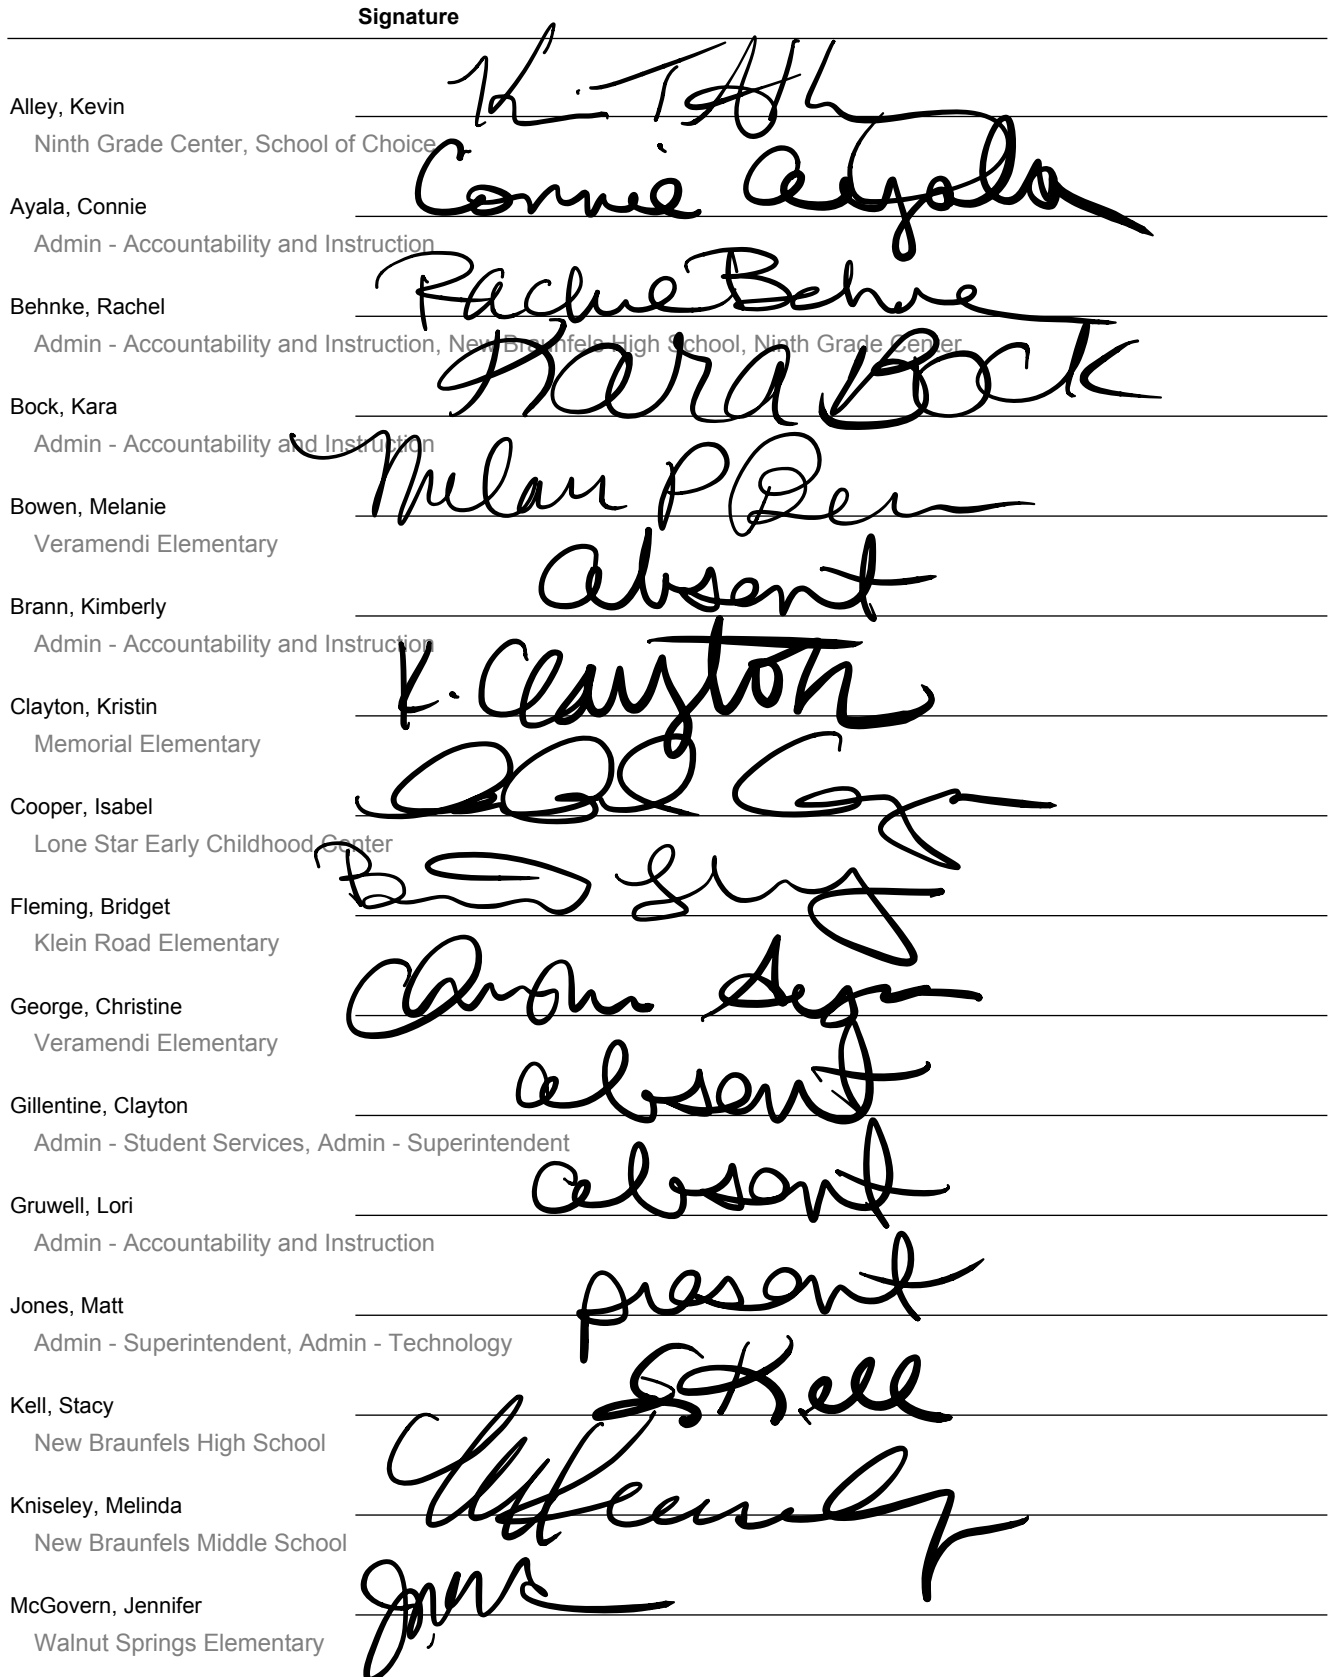 Signature
Alley, Kevin
Ninth Grade Center, School of Choice
Connie Ayala
Ayala, Connie
Admin - Accountability and Instruction
Behnke, Rachel
Admin - Accountability and Instruction, New Braunfels High School, Ninth Grade Center
Kara Bock
Bock, Kara
Admin - Accountability and Instruction
Bowen, Melanie
Veramendi Elementary
absent
Brann, Kimberly
Admin - Accountability and Instruction
K. Clayton
Clayton, Kristin
Memorial Elementary
Cooper, Isabel
Lone Star Early Childhood Center
Fleming, Bridget
Klein Road Elementary
George, Christine
Veramendi Elementary
absent
Gillentine, Clayton
Admin - Student Services, Admin - Superintendent
absent
Gruwell, Lori
Admin - Accountability and Instruction
present
Jones, Matt
Admin - Superintendent, Admin - Technology
S Kell
Kell, Stacy
New Braunfels High School
Kniseley, Melinda
New Braunfels Middle School
McGovern, Jennifer
Walnut Springs Elementary